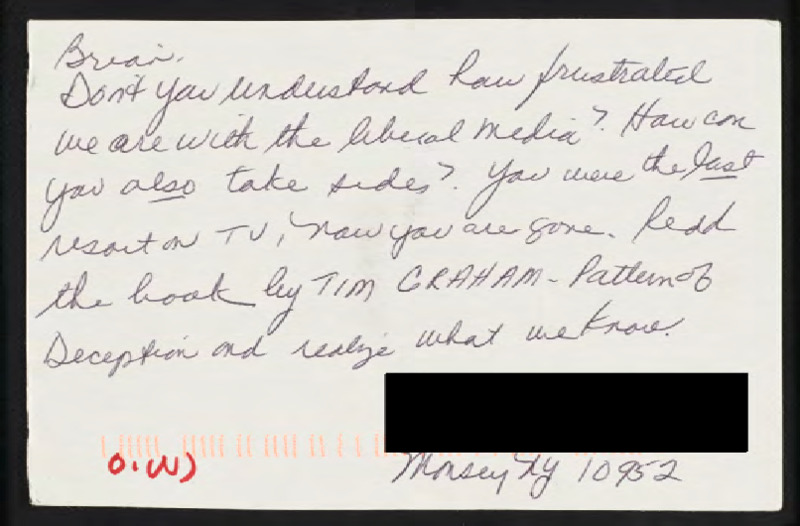 Brian.
Don't you understand how frustrated
we are with the liberal media? How can
you also take sides? You were the last
resort on TV, now you are gone. Read
the book by TIM GRAHAM - Pattern of
Deception and realize what we know.
Monsey NY 10952